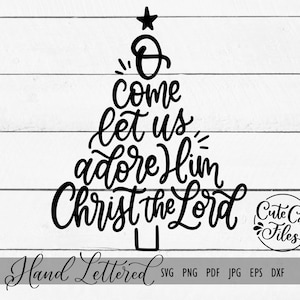 O
come
let us
adore Him
Christ the Lord
Cute Cu
Files
Hand Lettered SVG PNG PDF JPG EPS DXF